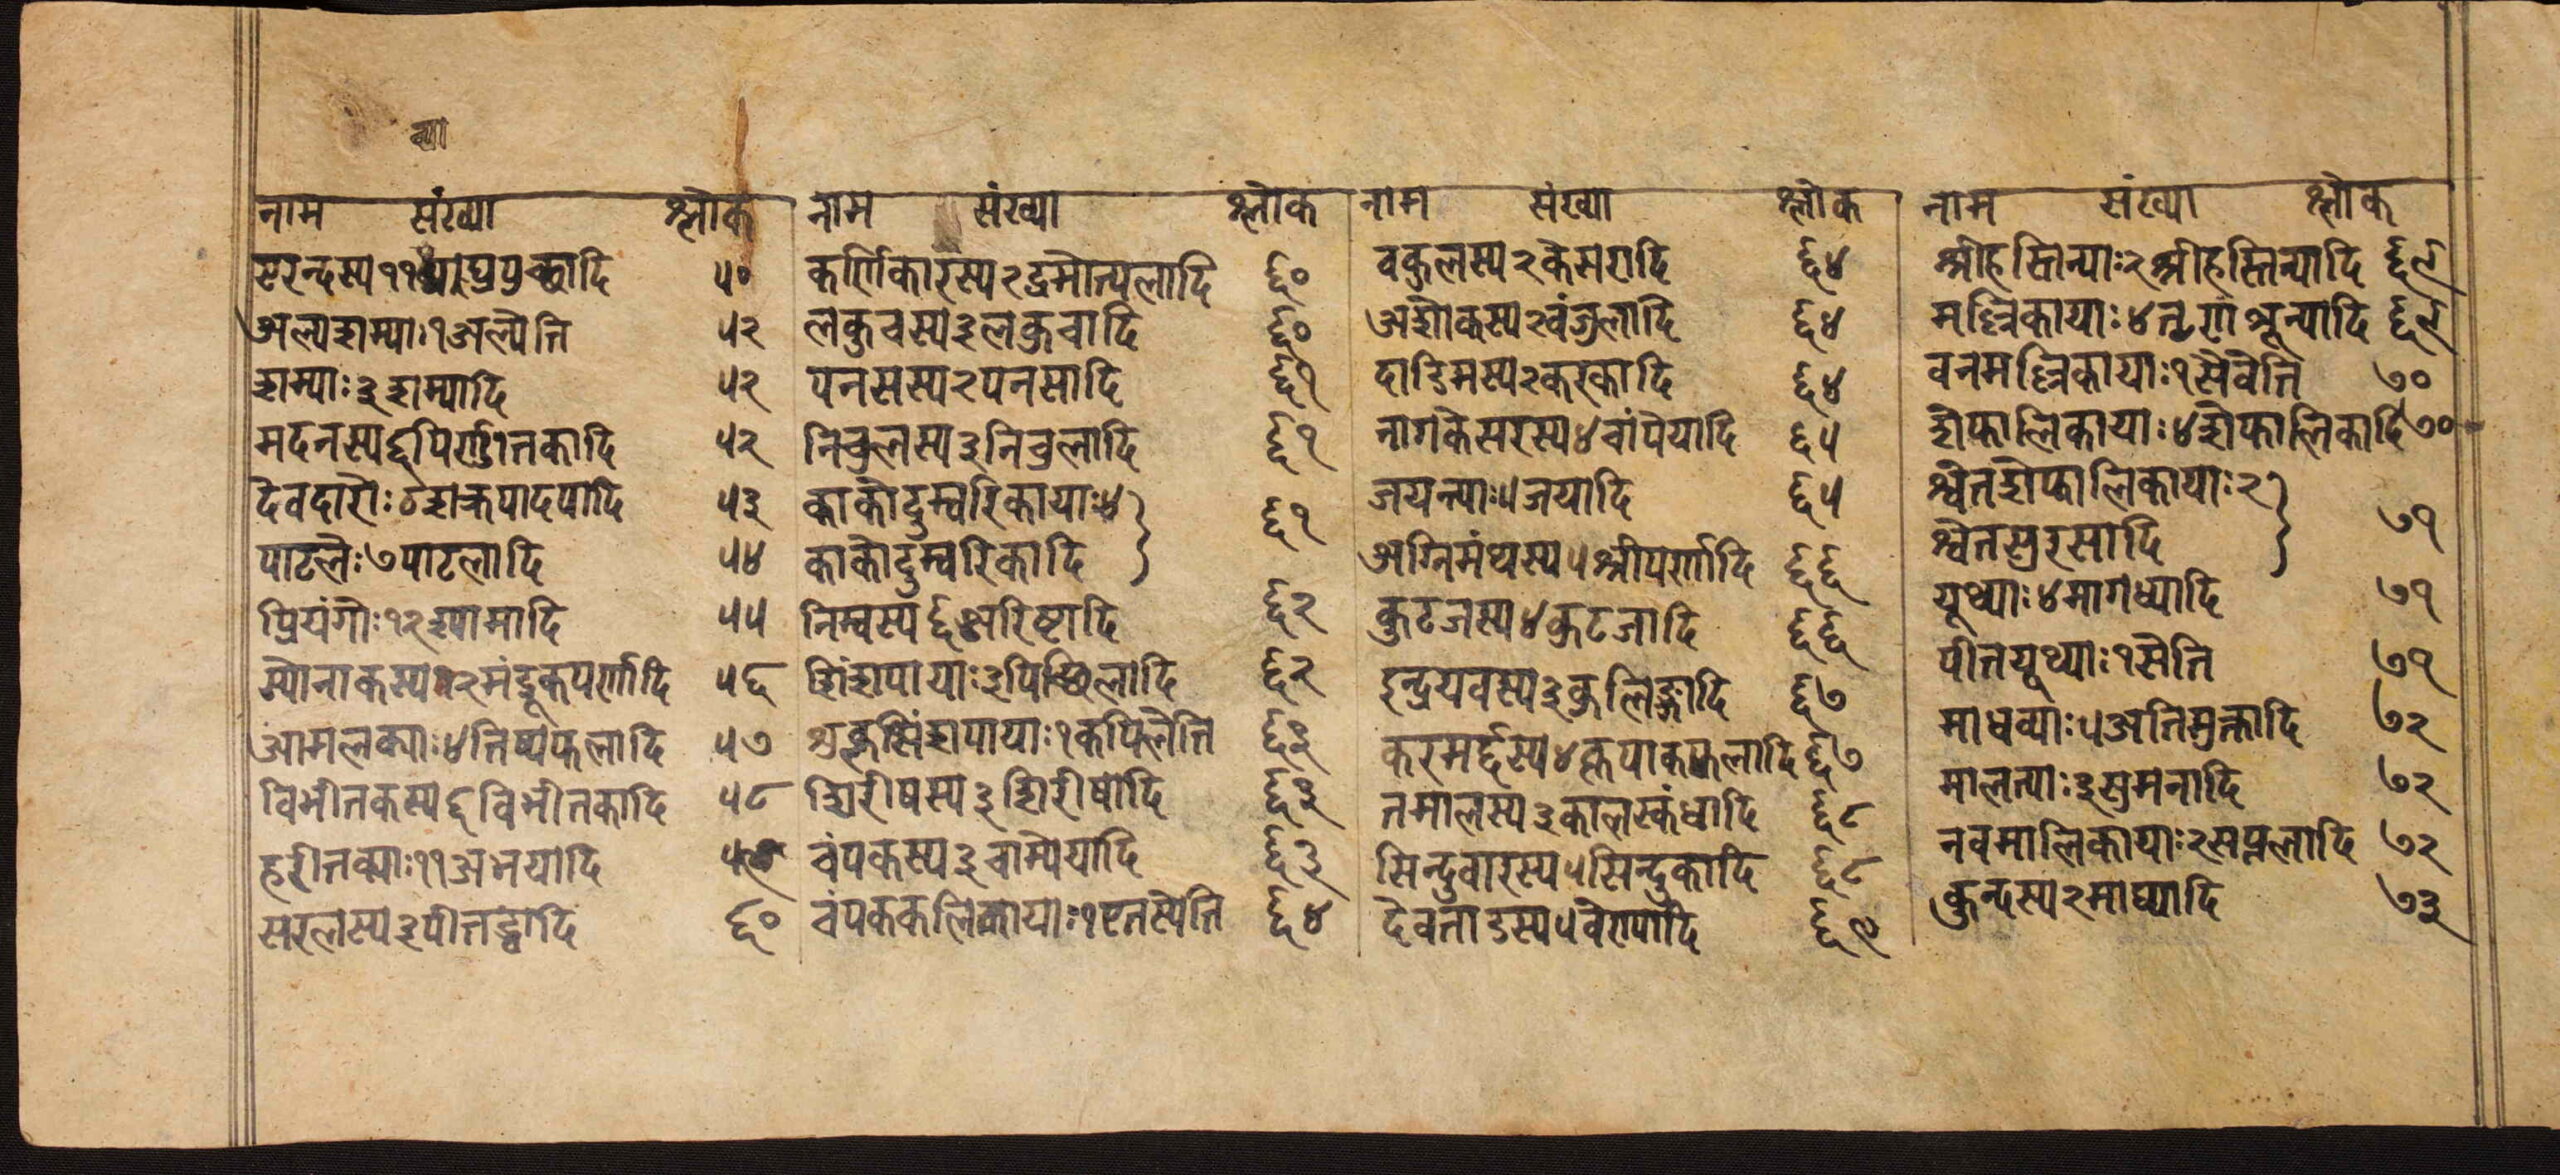 व्या
नाम संख्या श्लोक
एरन्दस्य ११ व्याघ्रपुच्छादि ५०
अल्पशम्याः १ अल्पेति ५२
शम्याः ३ शम्यादि ५२
मदनस्य ६ पिण्डीतकादि ५२
देवदारोः ८ शक्रपादपादि ५३
पाटलेः ७ पाटलादि ५४
प्रियंगोः १२ श्यामादि ५५
स्योनाकस्य १२ मंडूकपर्णादि ५६
आमलक्याः ४ तिष्यफलादि ५७
विभीतकस्य ६ विभीतकादि ५८
हरीतक्याः ११ अभयादि ५९
सरलस्य ३ पीतद्र्वादि ६०
नाम संख्या श्लोक
कर्णिकारस्य २ द्रुमोत्पलादि ६०
लकुचस्य ३ लकुचादि ६०
पनसस्य २ पनसादि ६१
निचुलस्य ३ निचुलादि ६१
काकोदुम्बरिकायाः ४
काकोदुम्बरिकादि ६१
निम्बस्य ६ अरिष्टादि ६२
शिंशपायाः ३ पिच्छिलादि ६२
शुक्लसिंशपायाः १ कपिलेति ६३
शिरीषस्य ३ शिरीषादि ६३
चंपकस्य ३ चाम्पेयादि ६३
चंपककलिकायाः १ एतस्येति ६४
नाम संख्या श्लोक
वकुलस्य २ केसरादि ६४
अशोकस्य २ वंजुलादि ६४
दाडिमस्य २ करकादि ६४
नागकेसरस्य ४ चांपेयादि ६५
जयन्त्याः ५ जयादि ६५
अग्निमंथस्य ५ श्रीपर्णादि ६६
कुटजस्य ४ कुटजादि ६६
इन्द्रयवस्य ३ कुलिङ्गादि ६७
करमर्द्दस्य ४ कृष्णपाकफलादि ६७
तमालस्य ३ कालस्कंधादि ६८
सिन्दुवारस्य ५ सिन्दुकादि ६८
देवताडस्य ५ वेणयादि ६९
नाम संख्या श्लोक
श्रीहस्तिन्याः २ श्रीहस्तिन्यादि ६९
मल्लिकायाः ४ तृणशून्यादि ६९
वनमल्लिकायाः १ सैवेति ७०
शेफालिकायाः ४ शेफालिकादि ७०
श्वेतशेफालिकायाः २
श्वेतसुरसादि ७१
यूथ्याः ४ मागध्यादि ७१
पीतयूथ्याः १ सेति ७१
माधव्याः ५ अतिमुक्तादि ७२
मालत्याः ३ सुमनादि ७२
नवमालिकायाः २ सप्तलादि ७२
कुन्दस्य २ माघ्यादि ७३